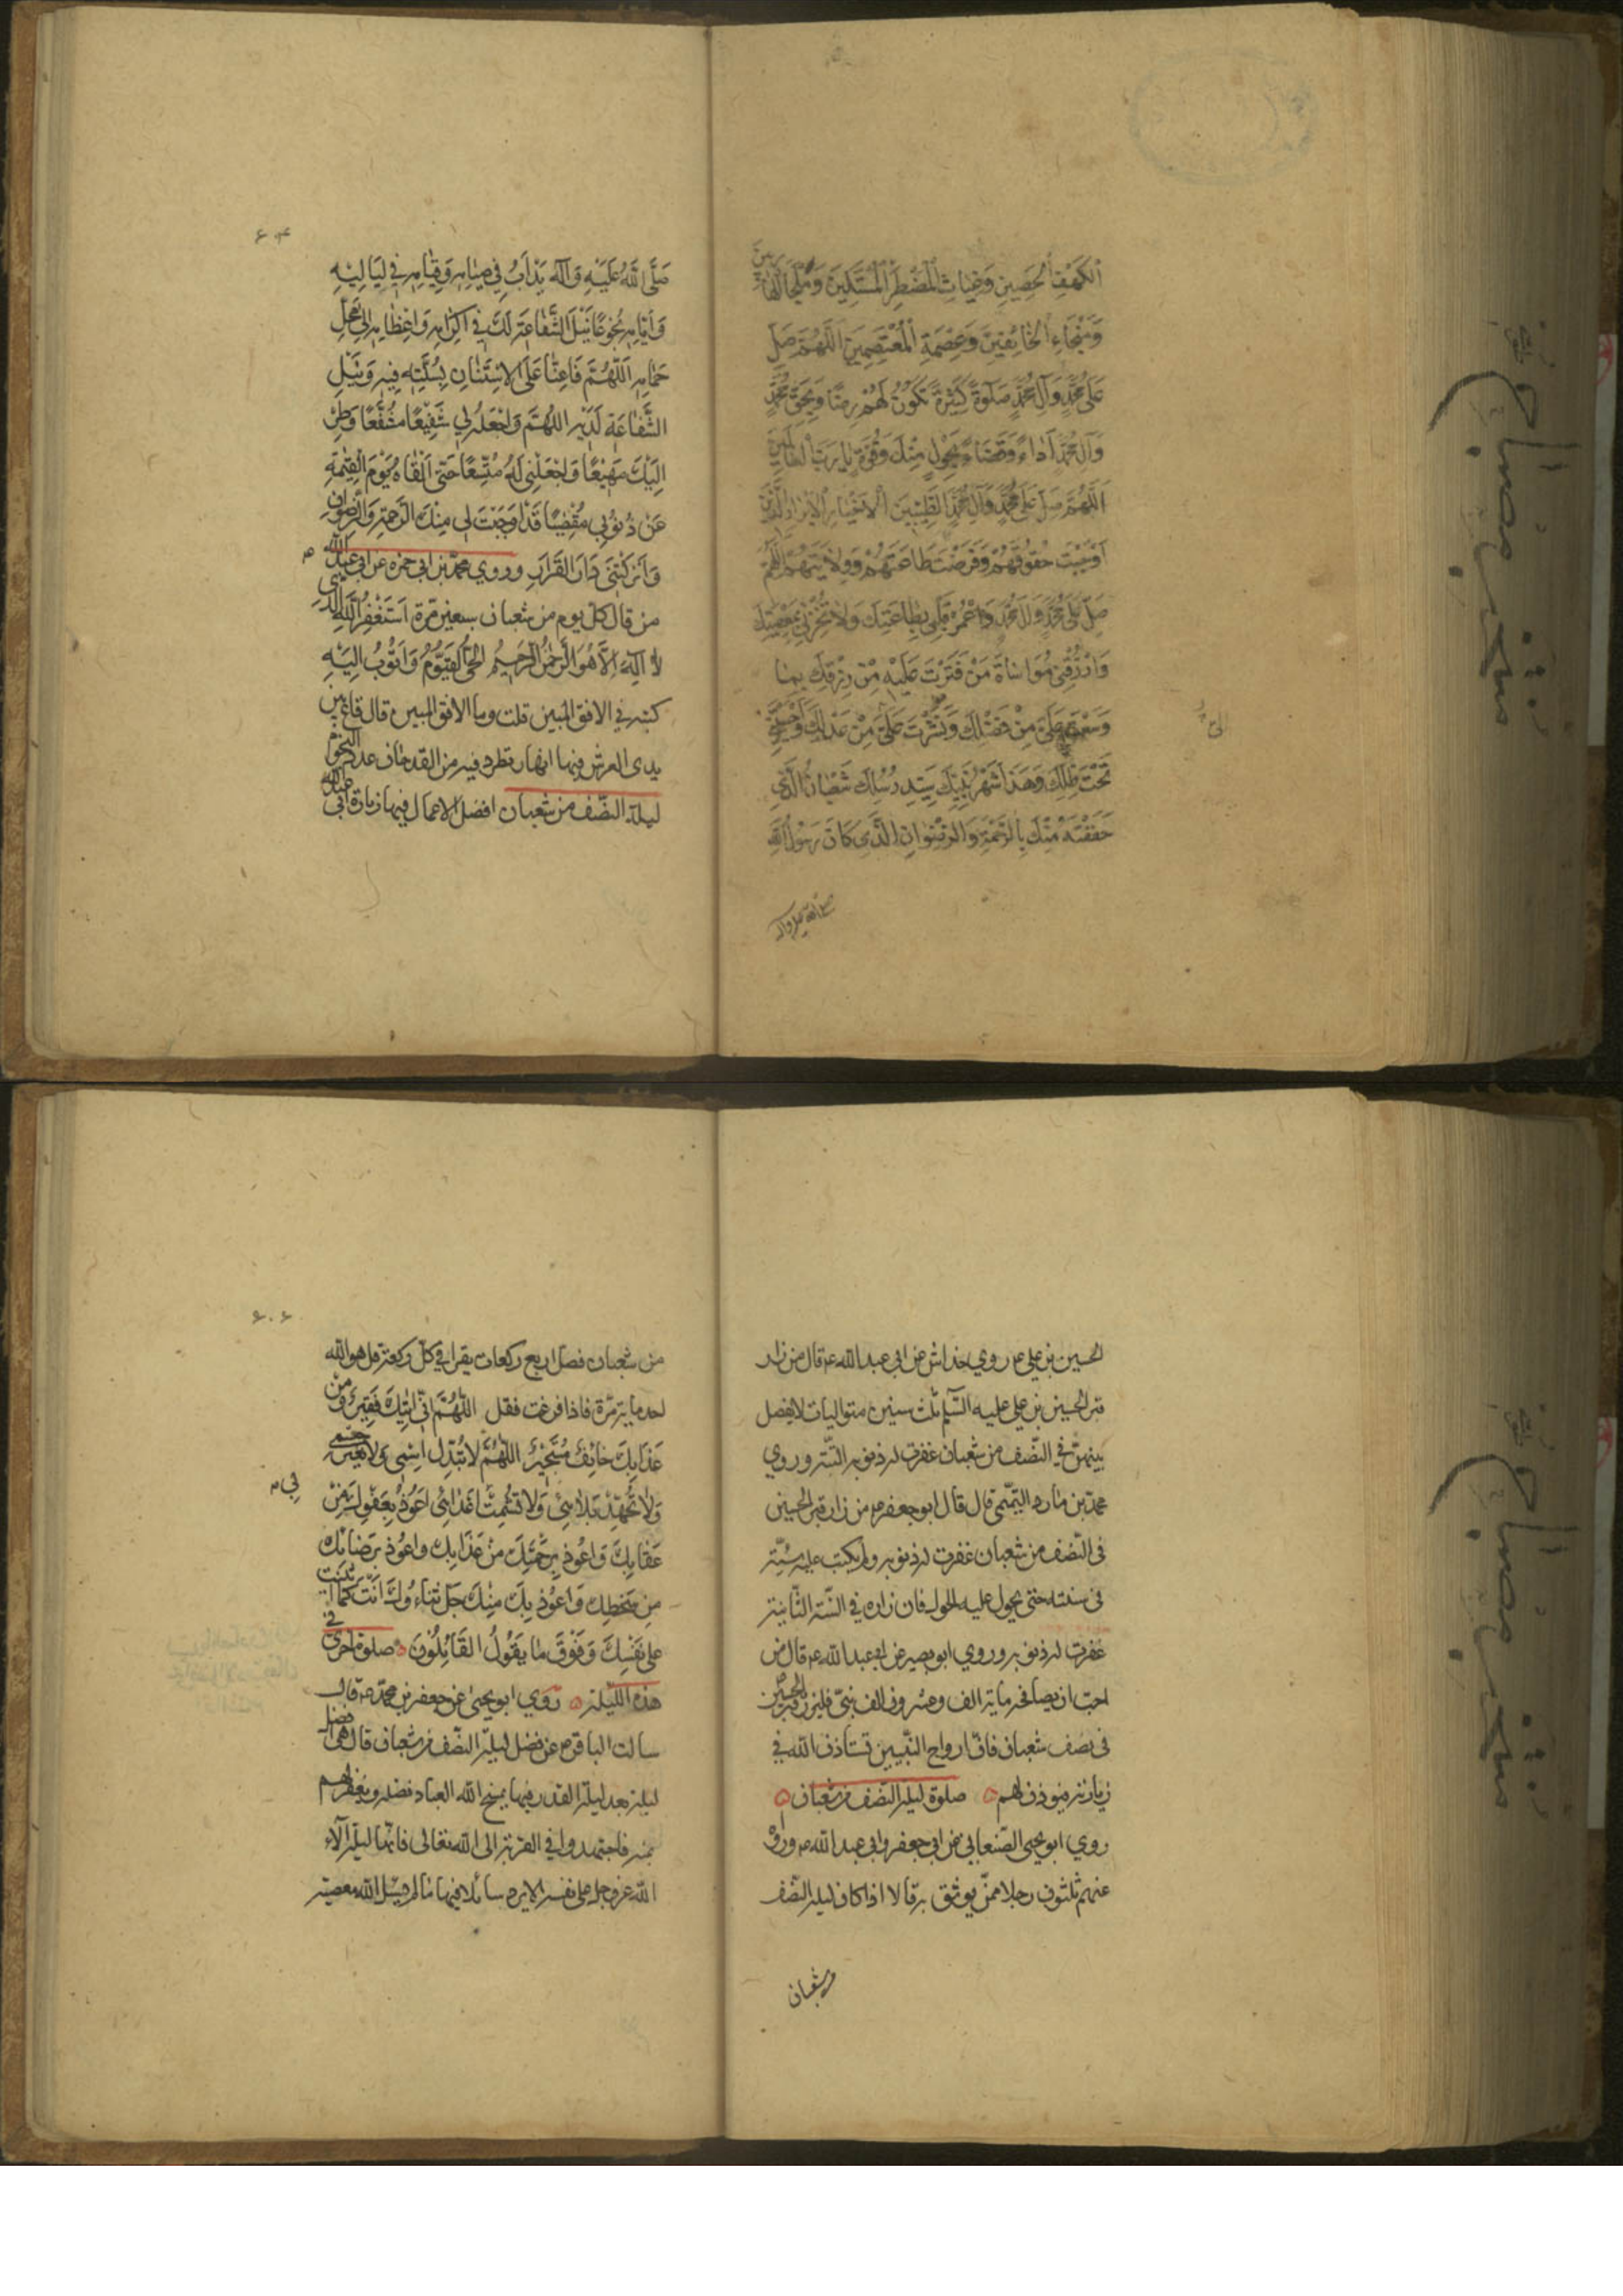 الْكَهْفِ الْحَصِينِ وَغِيَاثِ الْمُضْطَرِّ الْمُسْتَكِينَ وَمَلْجَأِ الْهَارِبِينَ
وَمَنْجَاءِ الْخَائِفِينَ وَعِصْمَةِ الْمُعْتَصِمِينَ اَللّٰهُمَّ صَلِّ
عَلَى مُحَمَّدٍ وَآلِ مُحَمَّدٍ صَلَوةً كَثِيرَةً تَكُونُ لَهُمْ رِضًا وَبِحَقِّ مُحَمَّدٍ
وَآلِ مُحَمَّدٍ اَدَاءً وَقَضَاءً بِحَوْلٍ مِنْكَ وَقُوَّةٍ يَا رَبَّ الْعَالَمِينَ
اَللّٰهُمَّ صَلِّ عَلَى مُحَمَّدٍ وَآلِ مُحَمَّدٍ الطَّيِّبِينَ الْاَخْيَارِ الْاَبْرَارِ الَّذِينَ
اَوْجَبْتَ حُقُوقَهُمْ وَفَرَضْتَ طَاعَتَهُمْ وَوِلَايَتَهُمْ اَللّٰهُمَّ
صَلِّ عَلَى مُحَمَّدٍ وَآلِ مُحَمَّدٍ وَاعْمُرْ قَلْبِي بِطَاعَتِكَ وَلَا تُخْزِنِي بِمَعْصِيَتِكَ
وَارْزُقْنِي مُوَاسَاةَ مَنْ قَتَّرْتَ عَلَيْهِ مِنْ رِزْقِكَ بِمَا
وَسَّعْتَ عَلَيَّ مِنْ فَضْلِكَ وَنَشَرْتَ عَلَيَّ مِنْ عَدْلِكَ وَاَحْيَيْتَنِي
تَحْتَ ظِلِّكَ وَهَذَا شَهْرُ نَبِيِّكَ سَيِّدِ رُسُلِكَ شَعْبَانُ الَّذِي
حَفَفْتَهُ مِنْكَ بِالرَّحْمَةِ وَالرِّضْوَانِ الَّذِي كَانَ رَسُولُ اللهِ
صلى الله عليه وآله
۶۰۴
صَلَّى اللهُ عَلَيْهِ وَآلِهِ يَدْاَبُ فِي صِيَامِهِ وَقِيَامِهِ فِي لَيَالِيهِ
وَاَيَّامِهِ بُخُوعًا نَيْلَ الشَّفَاعَةِ لَكَ فِي اِكْرَامِهِ وَاِعْظَامِهِ اِلَى مَحَلِّ
حِمَامِهِ اَللّٰهُمَّ فَاَعِنَّا عَلَى الْاِسْتِنَانِ بِسُنَّتِهِ فِيهِ وَنَيْلِ
الشَّفَاعَةِ لَدَيْهِ اللّٰهُمَّ وَاجْعَلْهُ لِي شَفِيعًا مُشَفَّعًا وَطَرِيقًا
اِلَيْكَ مَهْيَعًا وَاجْعَلْنِي لَهُ مُتَّبِعًا حَتَّى اَلْقَاهُ يَوْمَ الْقِيٰمَةِ
عَنْ ذُنُوبِي مُغْضِيًا قَدْ اَوْجَبْتَ لِي مِنْكَ الرَّحْمَةَ وَالرِّضْوَانَ
وَاَنْزَلْتَنِي دَارَ الْقَرَارِ وروي محمد بن ابي حمزه عن ابي عبد الله م
من قال كل يوم من شعبان سبعين مرّة اَسْتَغْفِرُ اللهَ الَّذِي
لَا اِلٰهَ اِلَّا هُوَ الرَّحْمٰنُ الرَّحِيمُ الْحَيُّ الْقَيُّومُ وَاَتُوبُ اِلَيْهِ
كتبه في الافق المبين قلت وما الافق المبين قال قاع بين
يدى العرش فيها انهار تطرد فيه من القدحان عدد النجوم
ليلة النّصف من شعبان افضل الاعمال فيها زيارة ابى عبد الله
الحسين بن علي ع روي خداش عن ابي عبد الله ع قال من زار
قبر الحسين بن علي عليه السّلم ثلث سنين متواليات لا يفصل
بينهنّ في النّصف من شعبان غفرت له ذنوبه البتّة وروي
محمد بن مارد التميمى قال قال ابو جعفر ع من زار قبر الحسين
فى النّصف من شعبان غفرت له ذنوبه ولم يكتب عليه سيّئة
فى سنته حتى يحول عليه الحول فان زاره في السّنة الثّانية
غفرت له ذنوبه وروي ابو بصير عن ابي عبد الله ع قال من
احبّ ان يصافحه مائة الف وعشرون الف نبيّ فليزر قبر الحسين
فى نصف شعبان فانّ ارواح النّبيين تستأذن الله في
زيارته فيؤذن لهم ه صلوة ليلة النّصف من شعبان ه
روي ابو يحيى الصّنعاني عن ابي جعفر وابي عبد الله ع ورواه
عنهم ثلثون رجلا ممّن يوثق به قالا اذا كان ليلة النّصف
من شعبان
۶۰۶
من شعبان فصل اربع ركعات يقرا في كل ركعة قل هو الله
احد مائة مرّة فاذا فرغت فقل اَللّٰهُمَّ اِنِّي اِلَيْكَ فَقِيرٌ وَمِنْ
عَذَابِكَ خَائِفٌ مُسْتَجِيرٌ اَللّٰهُمَّ لَا تُبَدِّلْ اِسْمِي وَلَا تُغَيِّرْ جِسْمِي
وَلَا تُجْهِدْ بَلَائِي وَلَا تُشْمِتْ اَعْدَائِي اَعُوذُ بِعَفْوِكَ مِنْ
بى م
عِقَابِكَ وَاَعُوذُ بِرَحْمَتِكَ مِنْ عَذَابِكَ وَاَعُوذُ بِرِضَائِكَ
مِنْ سَخَطِكَ وَاَعُوذُ بِكَ مِنْكَ جَلَّ ثَنَاءُوكَ اَنْتَ كَمَا اَثْنَيْتَ
عَلَى نَفْسِكَ وَفَوْقَ مَا يَقُولُ الْقَائِلُونَ ه صلوة اخرى في
هذه اللّيلة ه روي ابو يحيى عن جعفر بن محمد ع قال
سالت الباقر ع عن فضل ليلة النّصف من شعبان قال هى افضل
ليلة بعد ليلة القدر فيها يمنح الله العباد فضله ويغفر لهم
بمنه فاجتهدوا في القربة الى الله تعالى فانّها ليلة آلاء
الله عز وجل على نفسه الا يرد سائلا فيها ما لم يسئل الله معصية